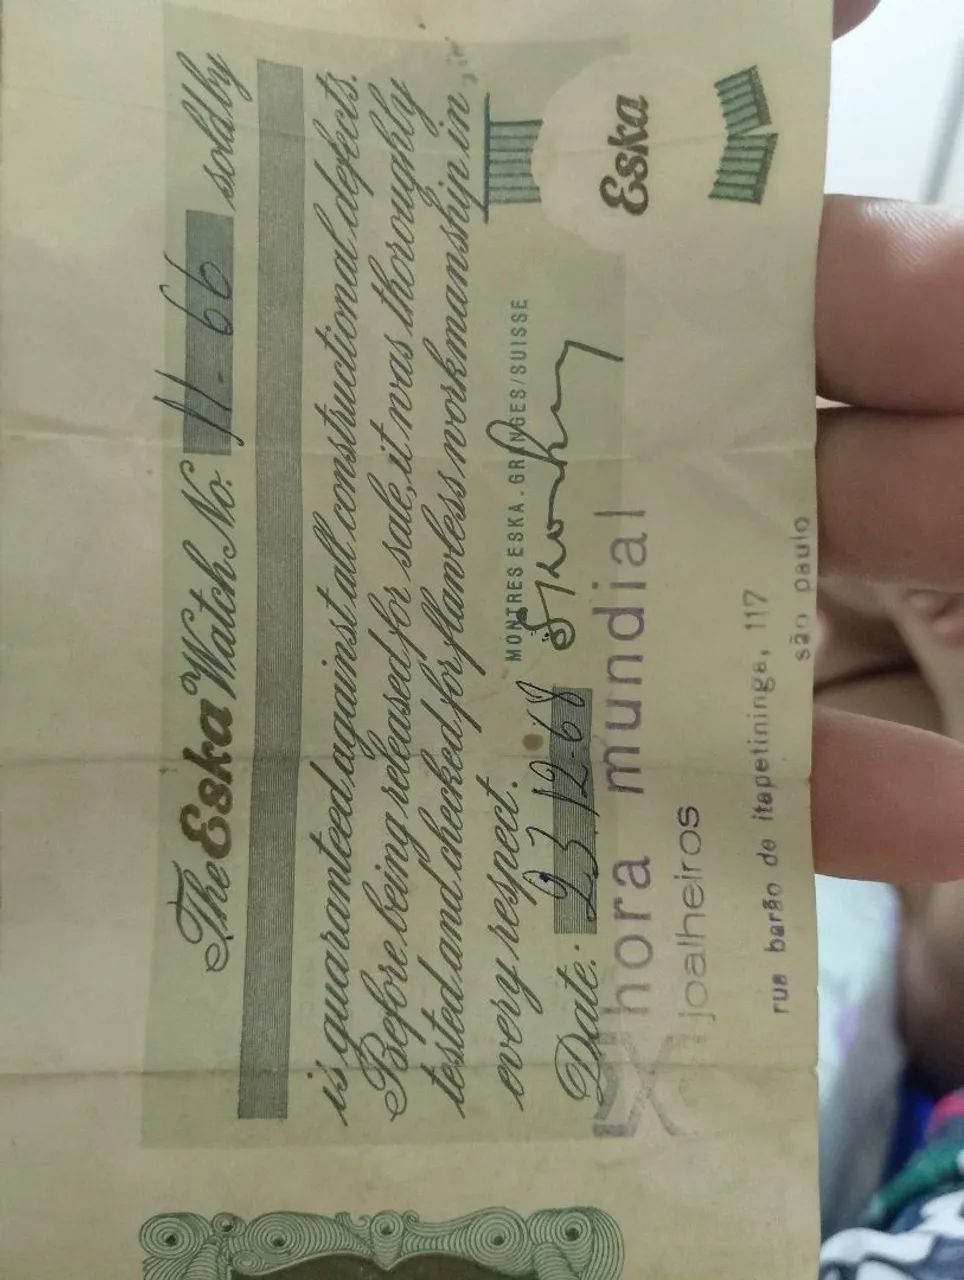 The Eska Watch No. 11-66 sold by
is guaranteed against all constructional defects.
Before being released for sale, it was thoroughly
tested and checked for flawless workmanship in
every respect.
MONTRES ESKA. GRANGES/SUISSE
Date: 23.12.68
Eska
hora mundial
joalheiros
rua barão de itapetininga, 117
são paulo